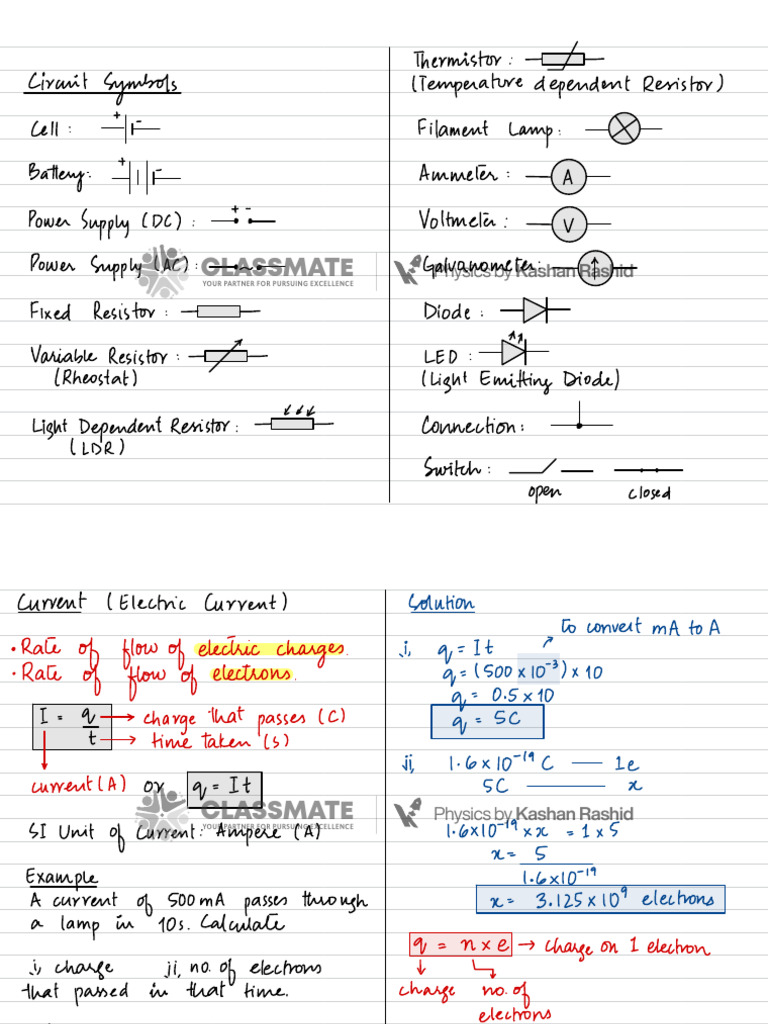 Circuit Symbols
Cell :
Battery:
Power Supply (DC) :
Power Supply (AC) :
Fixed Resistor :
Variable Resistor :
(Rheostat)
Light Dependent Resistor :
(LDR)
Thermistor :
(Temperature dependent Resistor)
Filament Lamp :
Ammeter : A
Voltmeter : V
Galvanometer :
Diode :
LED :
(Light Emitting Diode)
Connection :
Switch :
open closed
CLASSMATE
YOUR PARTNER FOR PURSUING EXCELLENCE
Physics by Kashan Rashid
Current (Electric Current)
• Rate of flow of electric charges.
• Rate of flow of electrons.
I = q/t
charge that passes (C)
time taken (s)
current (A) or q = It
SI Unit of Current: Ampere (A)
Example
A current of 500 mA passes through
a lamp in 10s. Calculate
i, charge ii, no. of electrons
that passed in that time.
CLASSMATE
YOUR PARTNER FOR PURSUING EXCELLENCE
Solution
to convert mA to A
i, q = It
q = (500 × 10⁻³) × 10
q = 0.5 × 10
q = 5C
ii, 1.6 × 10⁻¹⁹ C — 1e
5C — x
Physics by Kashan Rashid
1.6×10⁻¹⁹ × x = 1 × 5
x = 5
1.6×10⁻¹⁹
x = 3.125 × 10⁹ electrons
q = n × e → charge on 1 electron
charge no. of
electrons